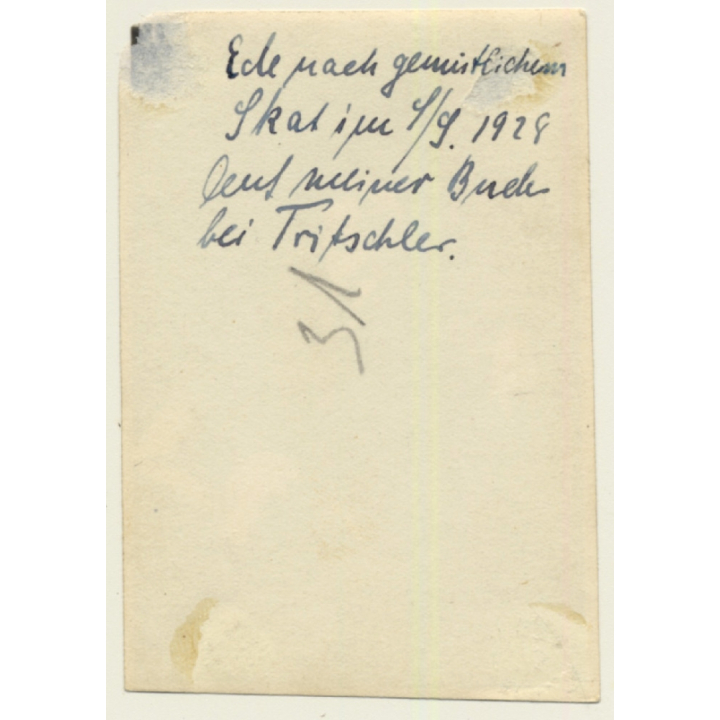 Ede nach gemütlichem
Skat im S/S. 1928
auf meiner Bude
bei Tritschler.
31